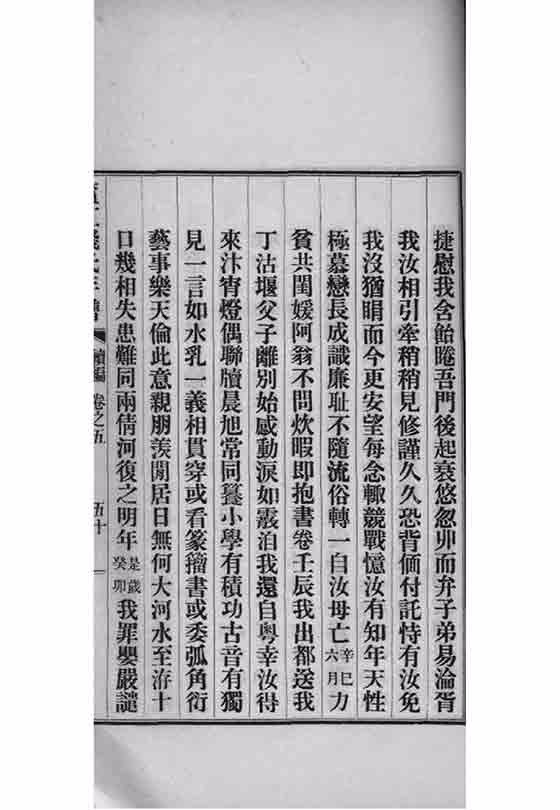 捷慰我含飴睠吾門後起衰悠忽丱而弁子弟易淪胥
我汝相引牽稍稍見修謹久久恐背偭付託恃有汝免
我沒猶睊而今更安望每念輒競戰憶汝有知年天性
極慕戀長成識廉恥不隨流俗轉一自汝母亡辛巳六月力
貧共閨媛阿翁不問炊暇即抱書卷壬辰我出都送我
丁沽堰父子離別始感動淚如霰洎我還自粵幸汝得
來汴宵燈偶聯牘晨旭常同饔小學有積功古音有獨
見一言如水乳一義相貫穿或看篆籀書或委弧角衍
藝事樂天倫此意親朋羨閒居日無何大河水至洊十
日幾相失患難同兩倩河復之明年是歲癸卯我罪嬰嚴譴
續編 卷之五 五十